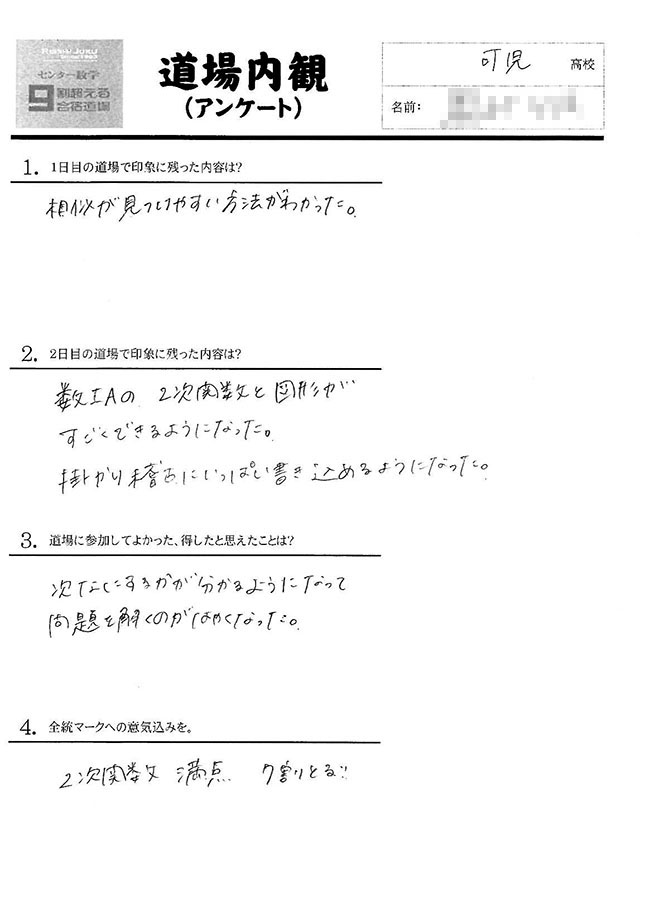 センター数学
9割超える
合宿道場
道場内観
(アンケート)
可児 高校
名前:
1. 1日目の道場で印象に残った内容は?
相似が見つけやすい方法がわかった。
2. 2日目の道場で印象に残った内容は?
数ⅠAの 2次関数と図形が
すごくできるようになった。
掛かり稽古にいっぱい書き込めるようになった。
3. 道場に参加してよかった、得したと思えたことは?
次なにするかが分かるようになって
問題を解くのがはやくなった。
4. 全統マークへの意気込みを。
2次関数 満点 7割りとる!!